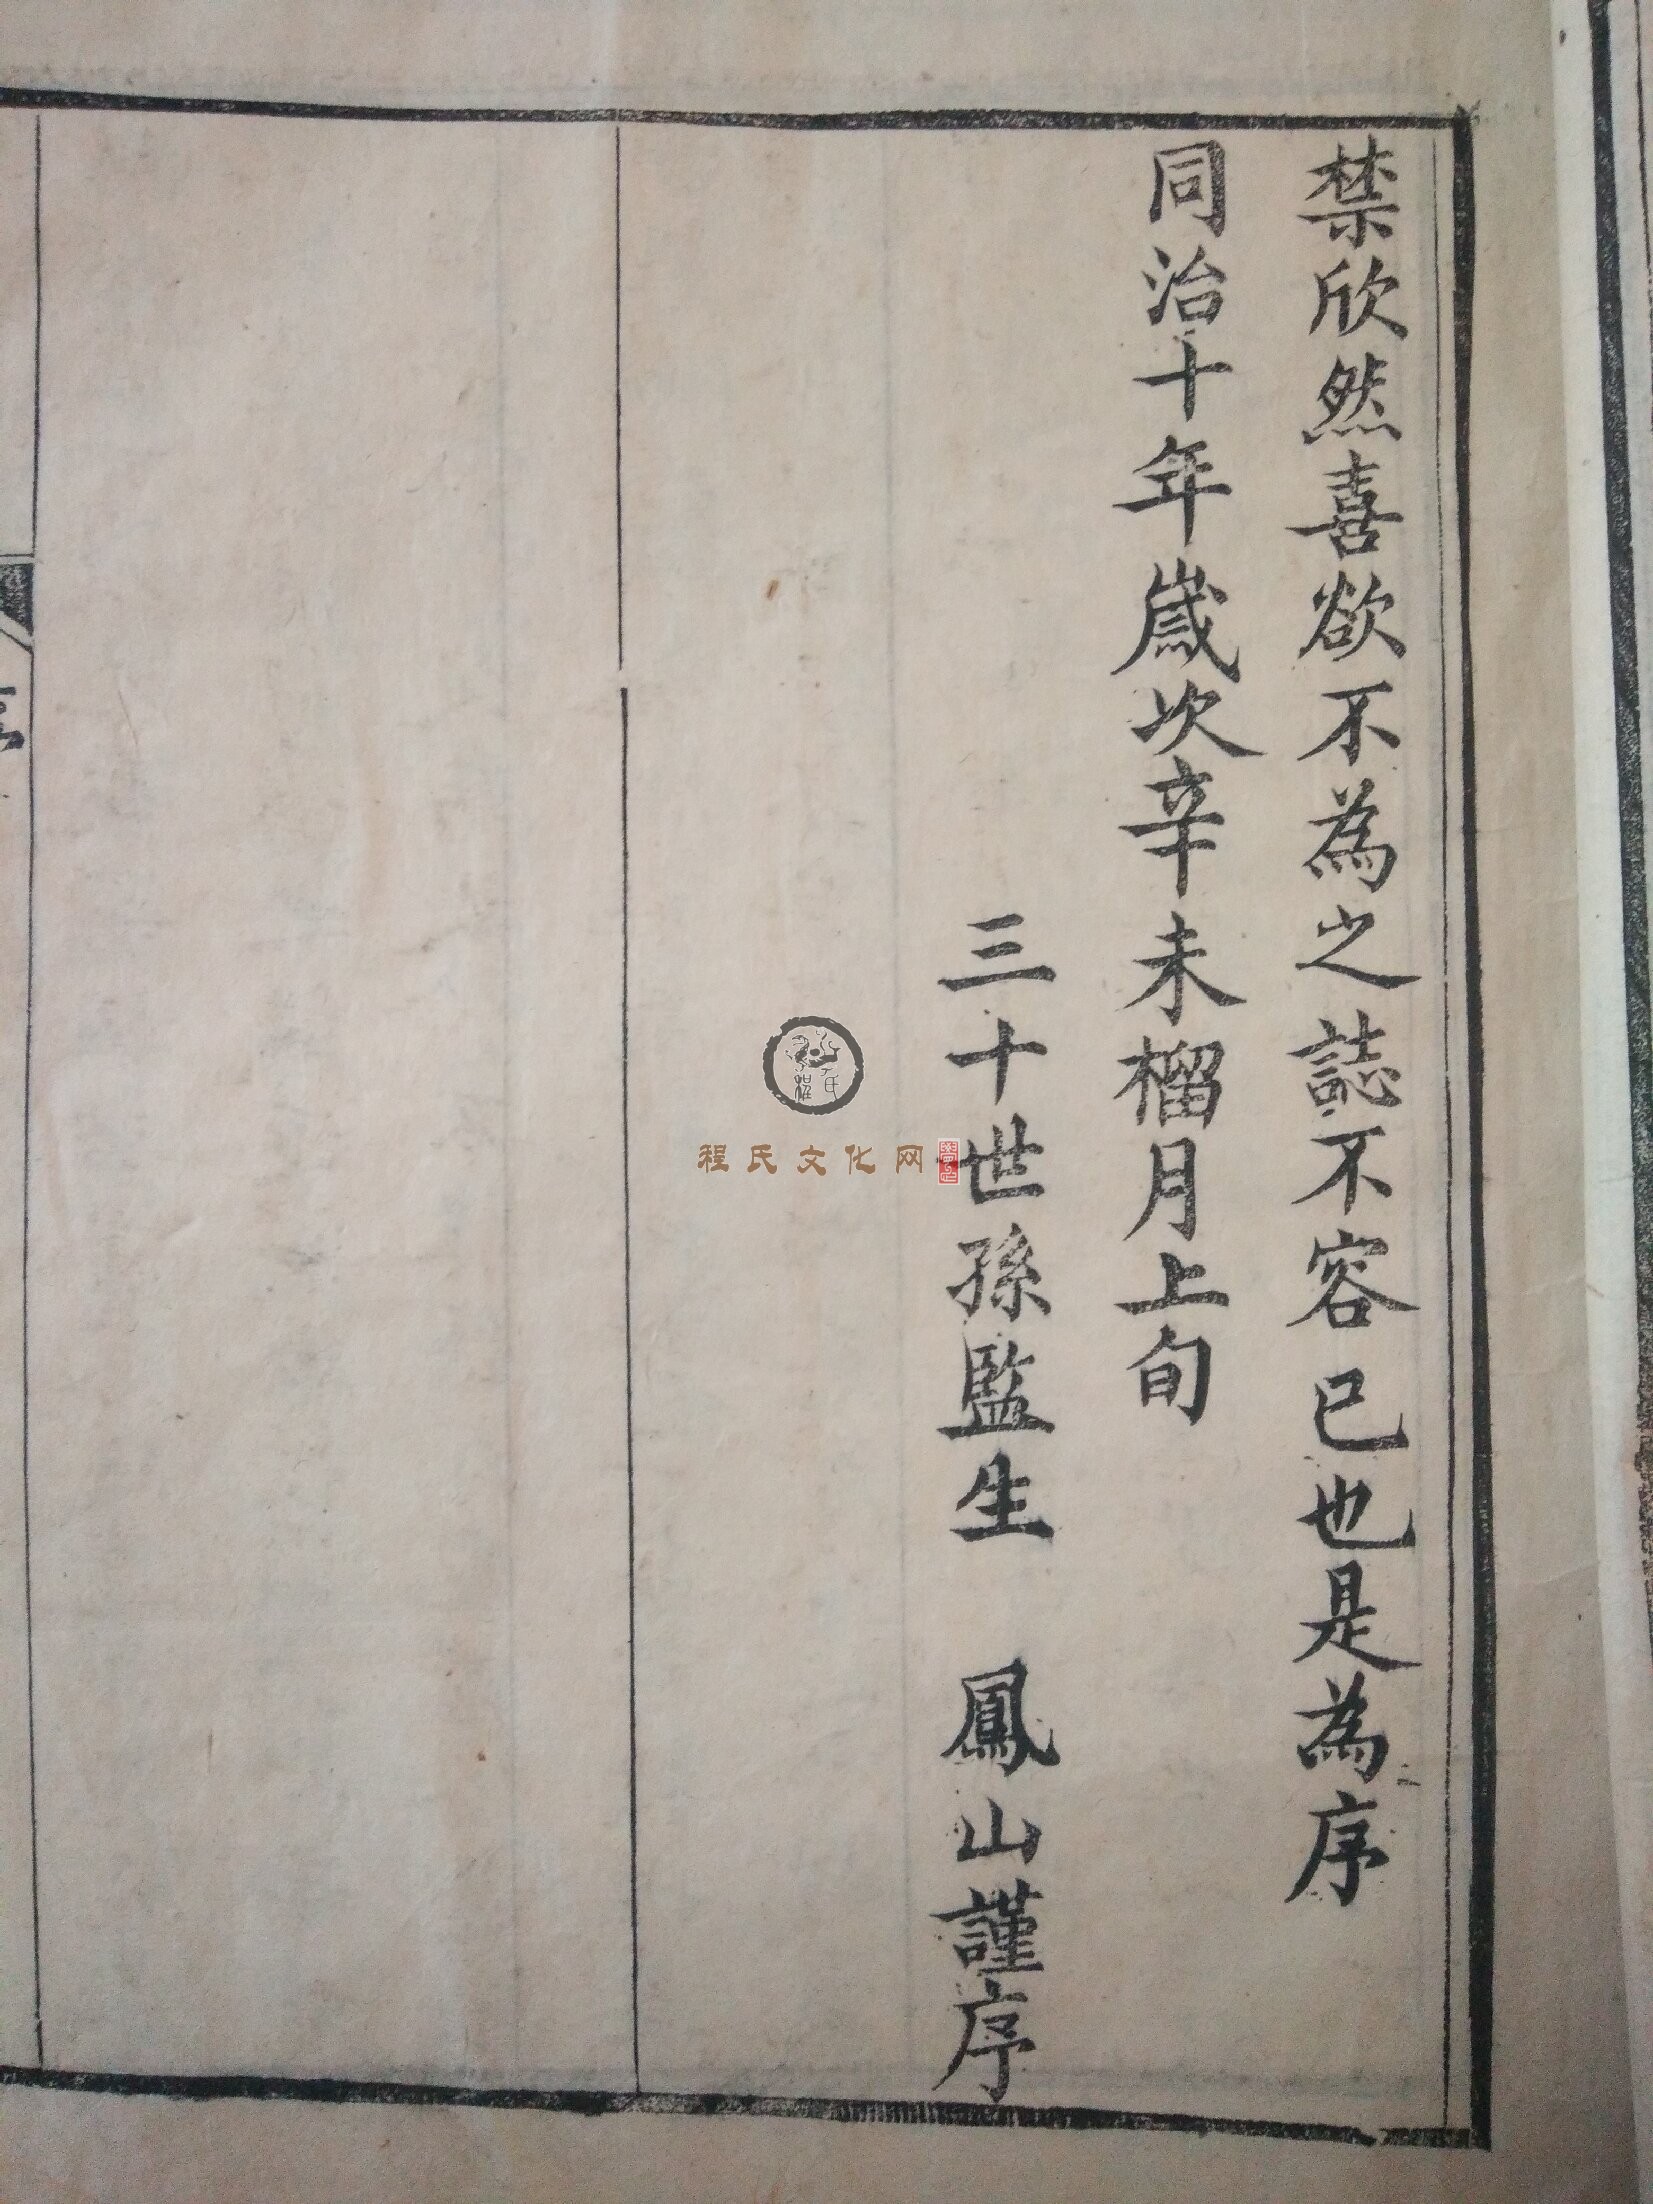 禁欣然喜欲不為之誌不容已也是為序
同治十年歲次辛未榴月上旬
三十世孫監生　鳳山謹序
程氏文化网